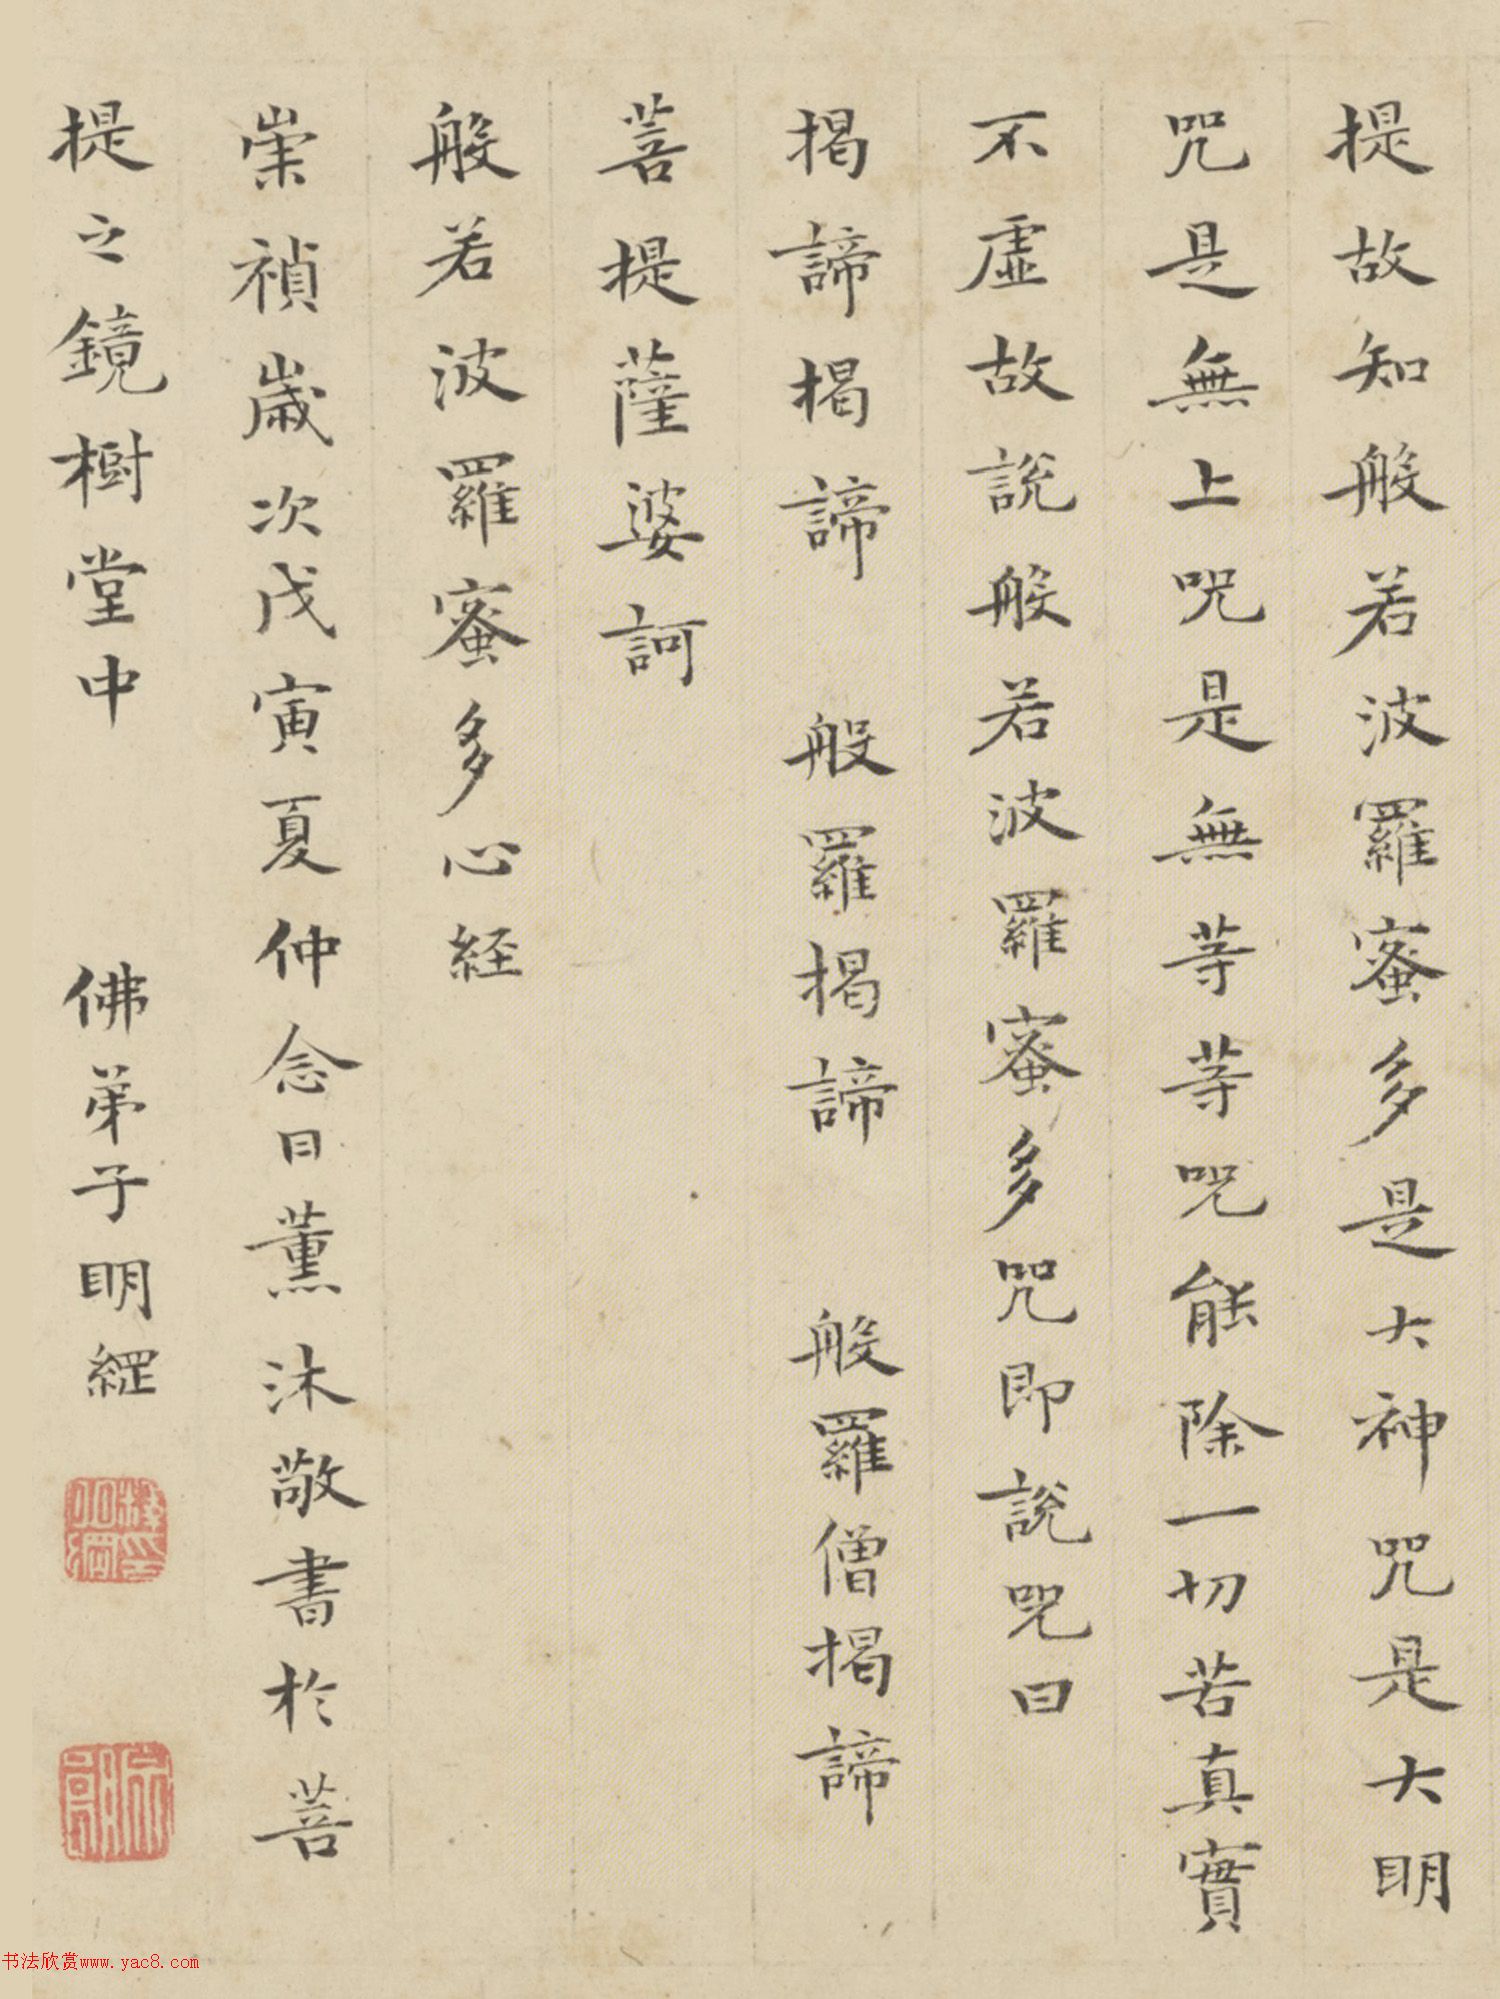 提故知般若波羅蜜多是大神咒是大明
咒是無上咒是無等等咒能除一切苦真實
不虛故說般若波羅蜜多咒即說咒曰
揭諦揭諦 般羅揭諦 般羅僧揭諦
菩提薩婆訶
般若波羅蜜多心経
崇禎歲次戊寅夏仲念日薰沐敬書於菩
提之鏡樹堂中 佛弟子明
书法欣赏www.yac8.com